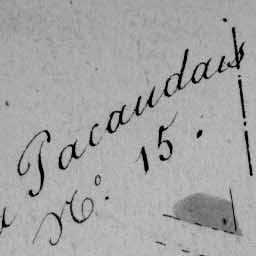 a Pacaudais
N.° 15.